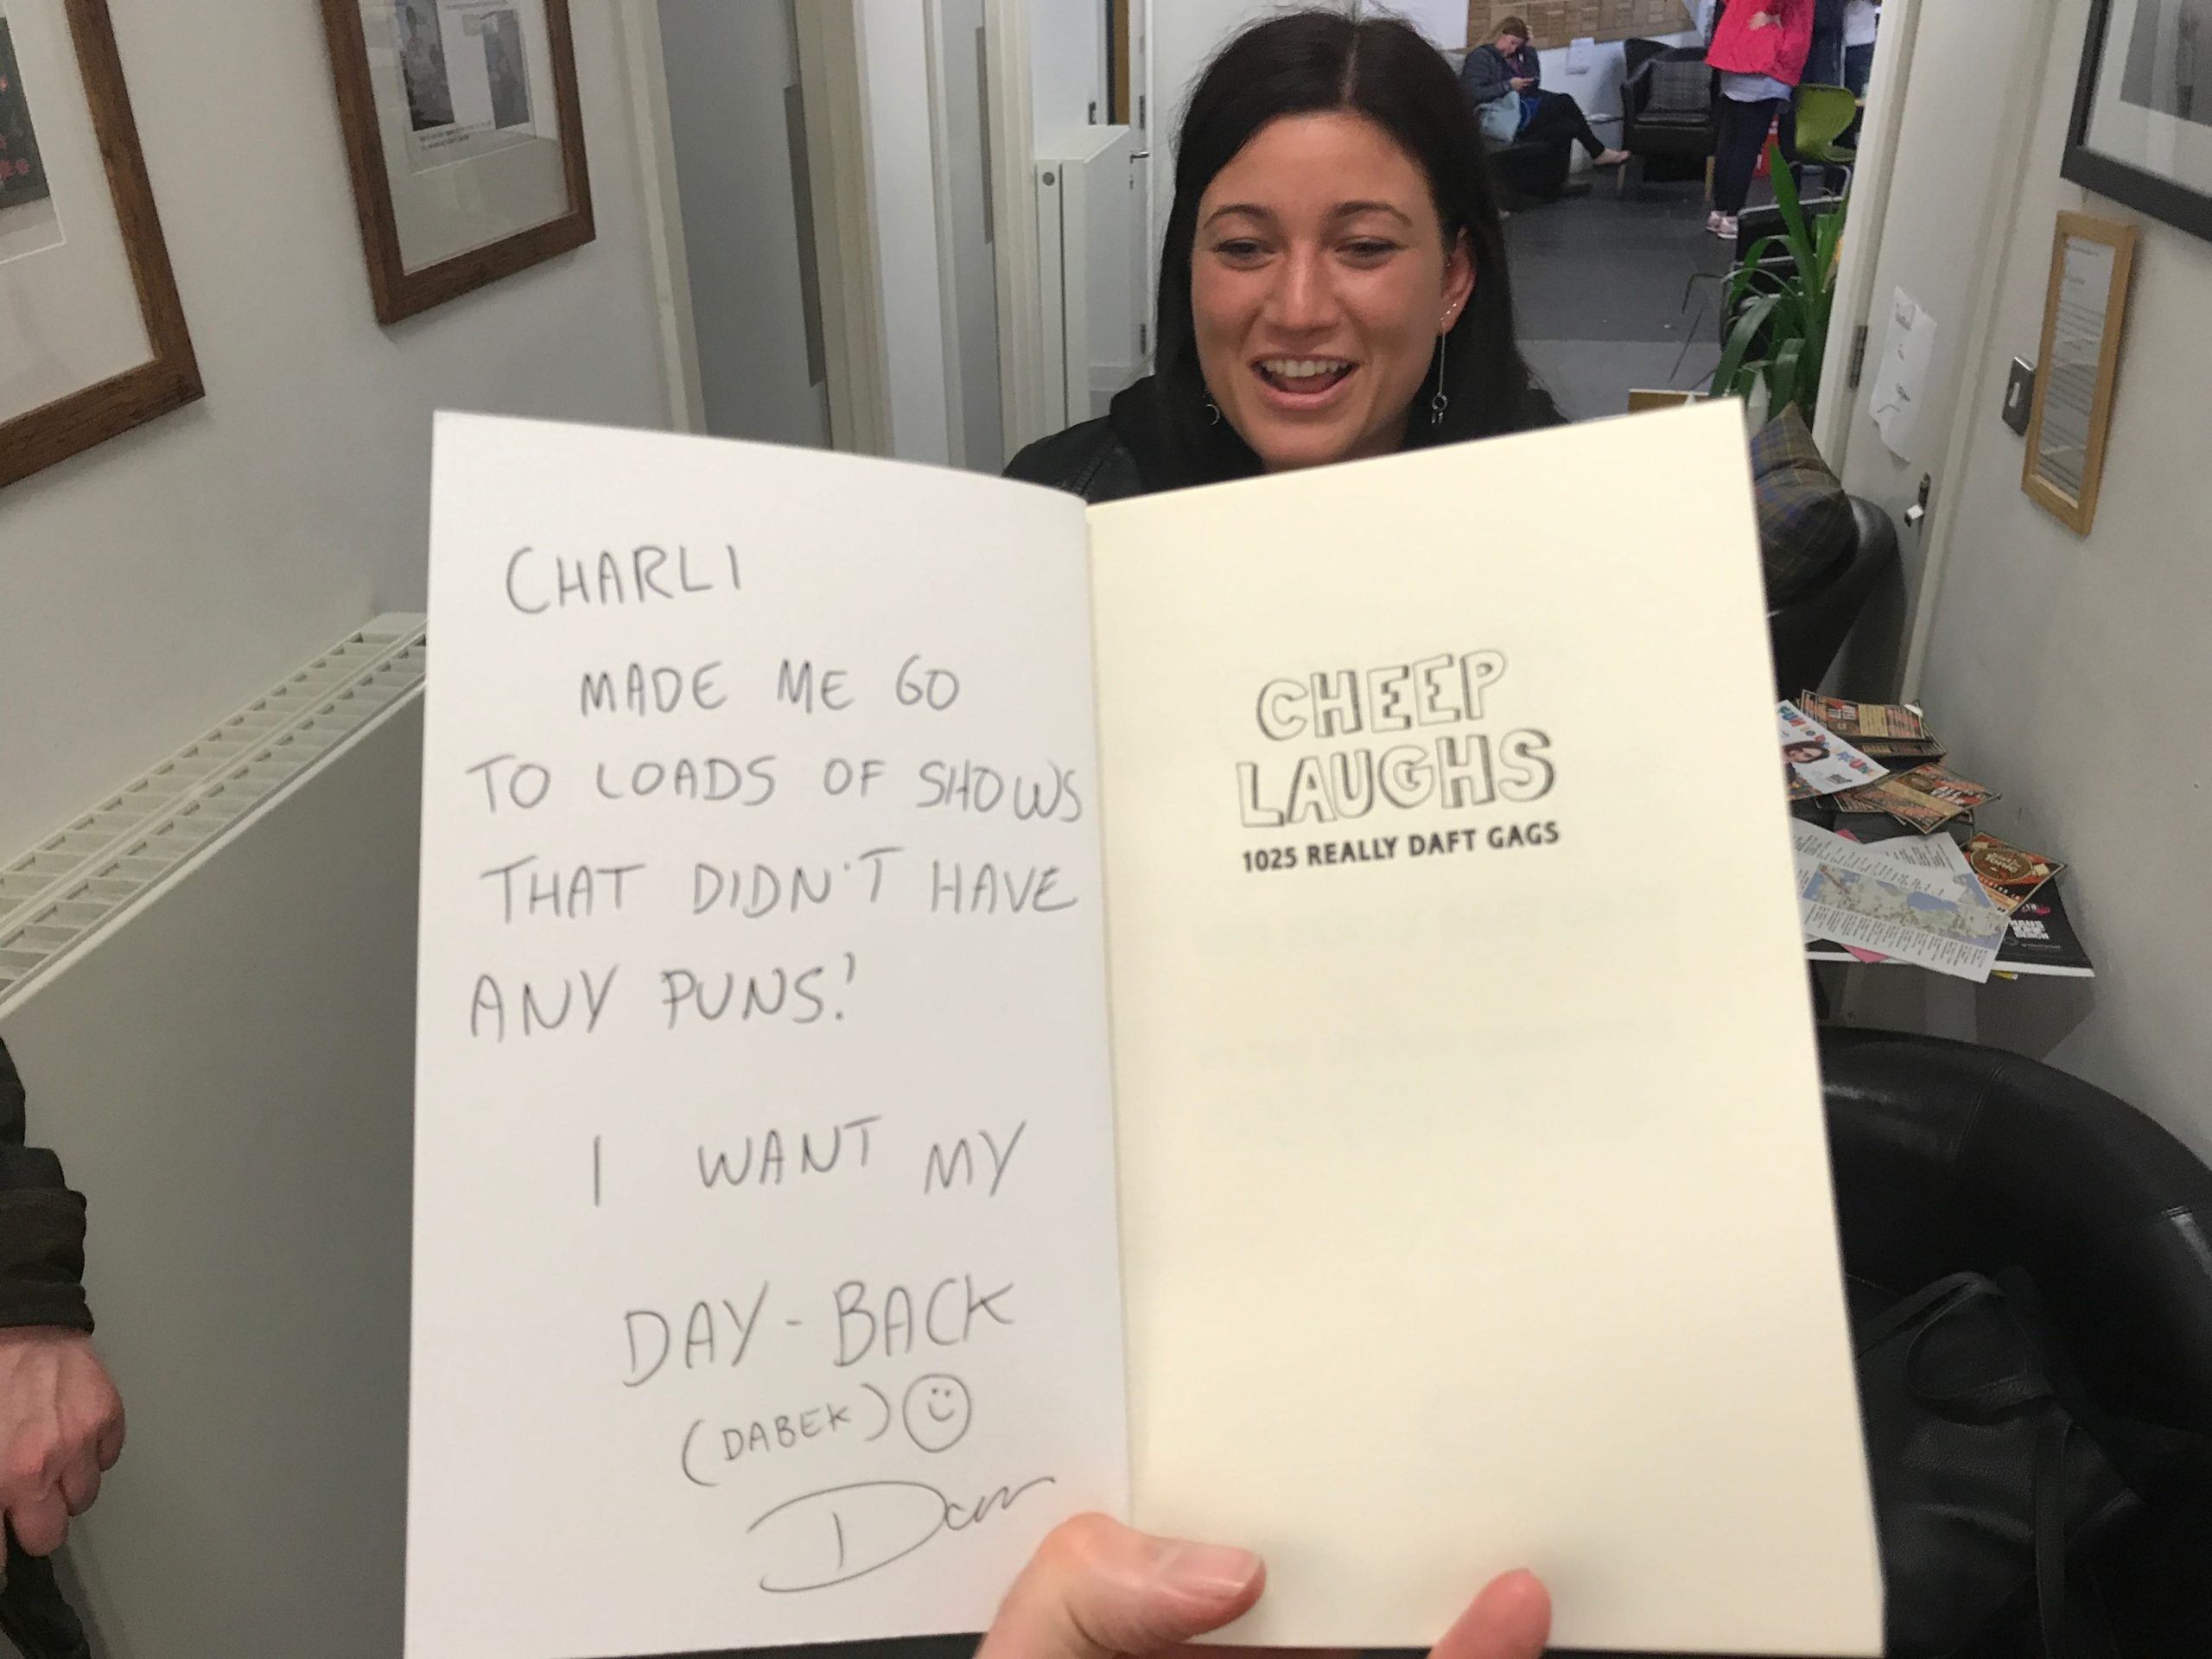 CHARLI
MADE ME GO
TO LOADS OF SHOWS
THAT DIDN'T HAVE
ANY PUNS!
I WANT MY
DAY-BACK
(DABEK)
CHEEP
LAUGHS
1025 REALLY DAFT GAGS